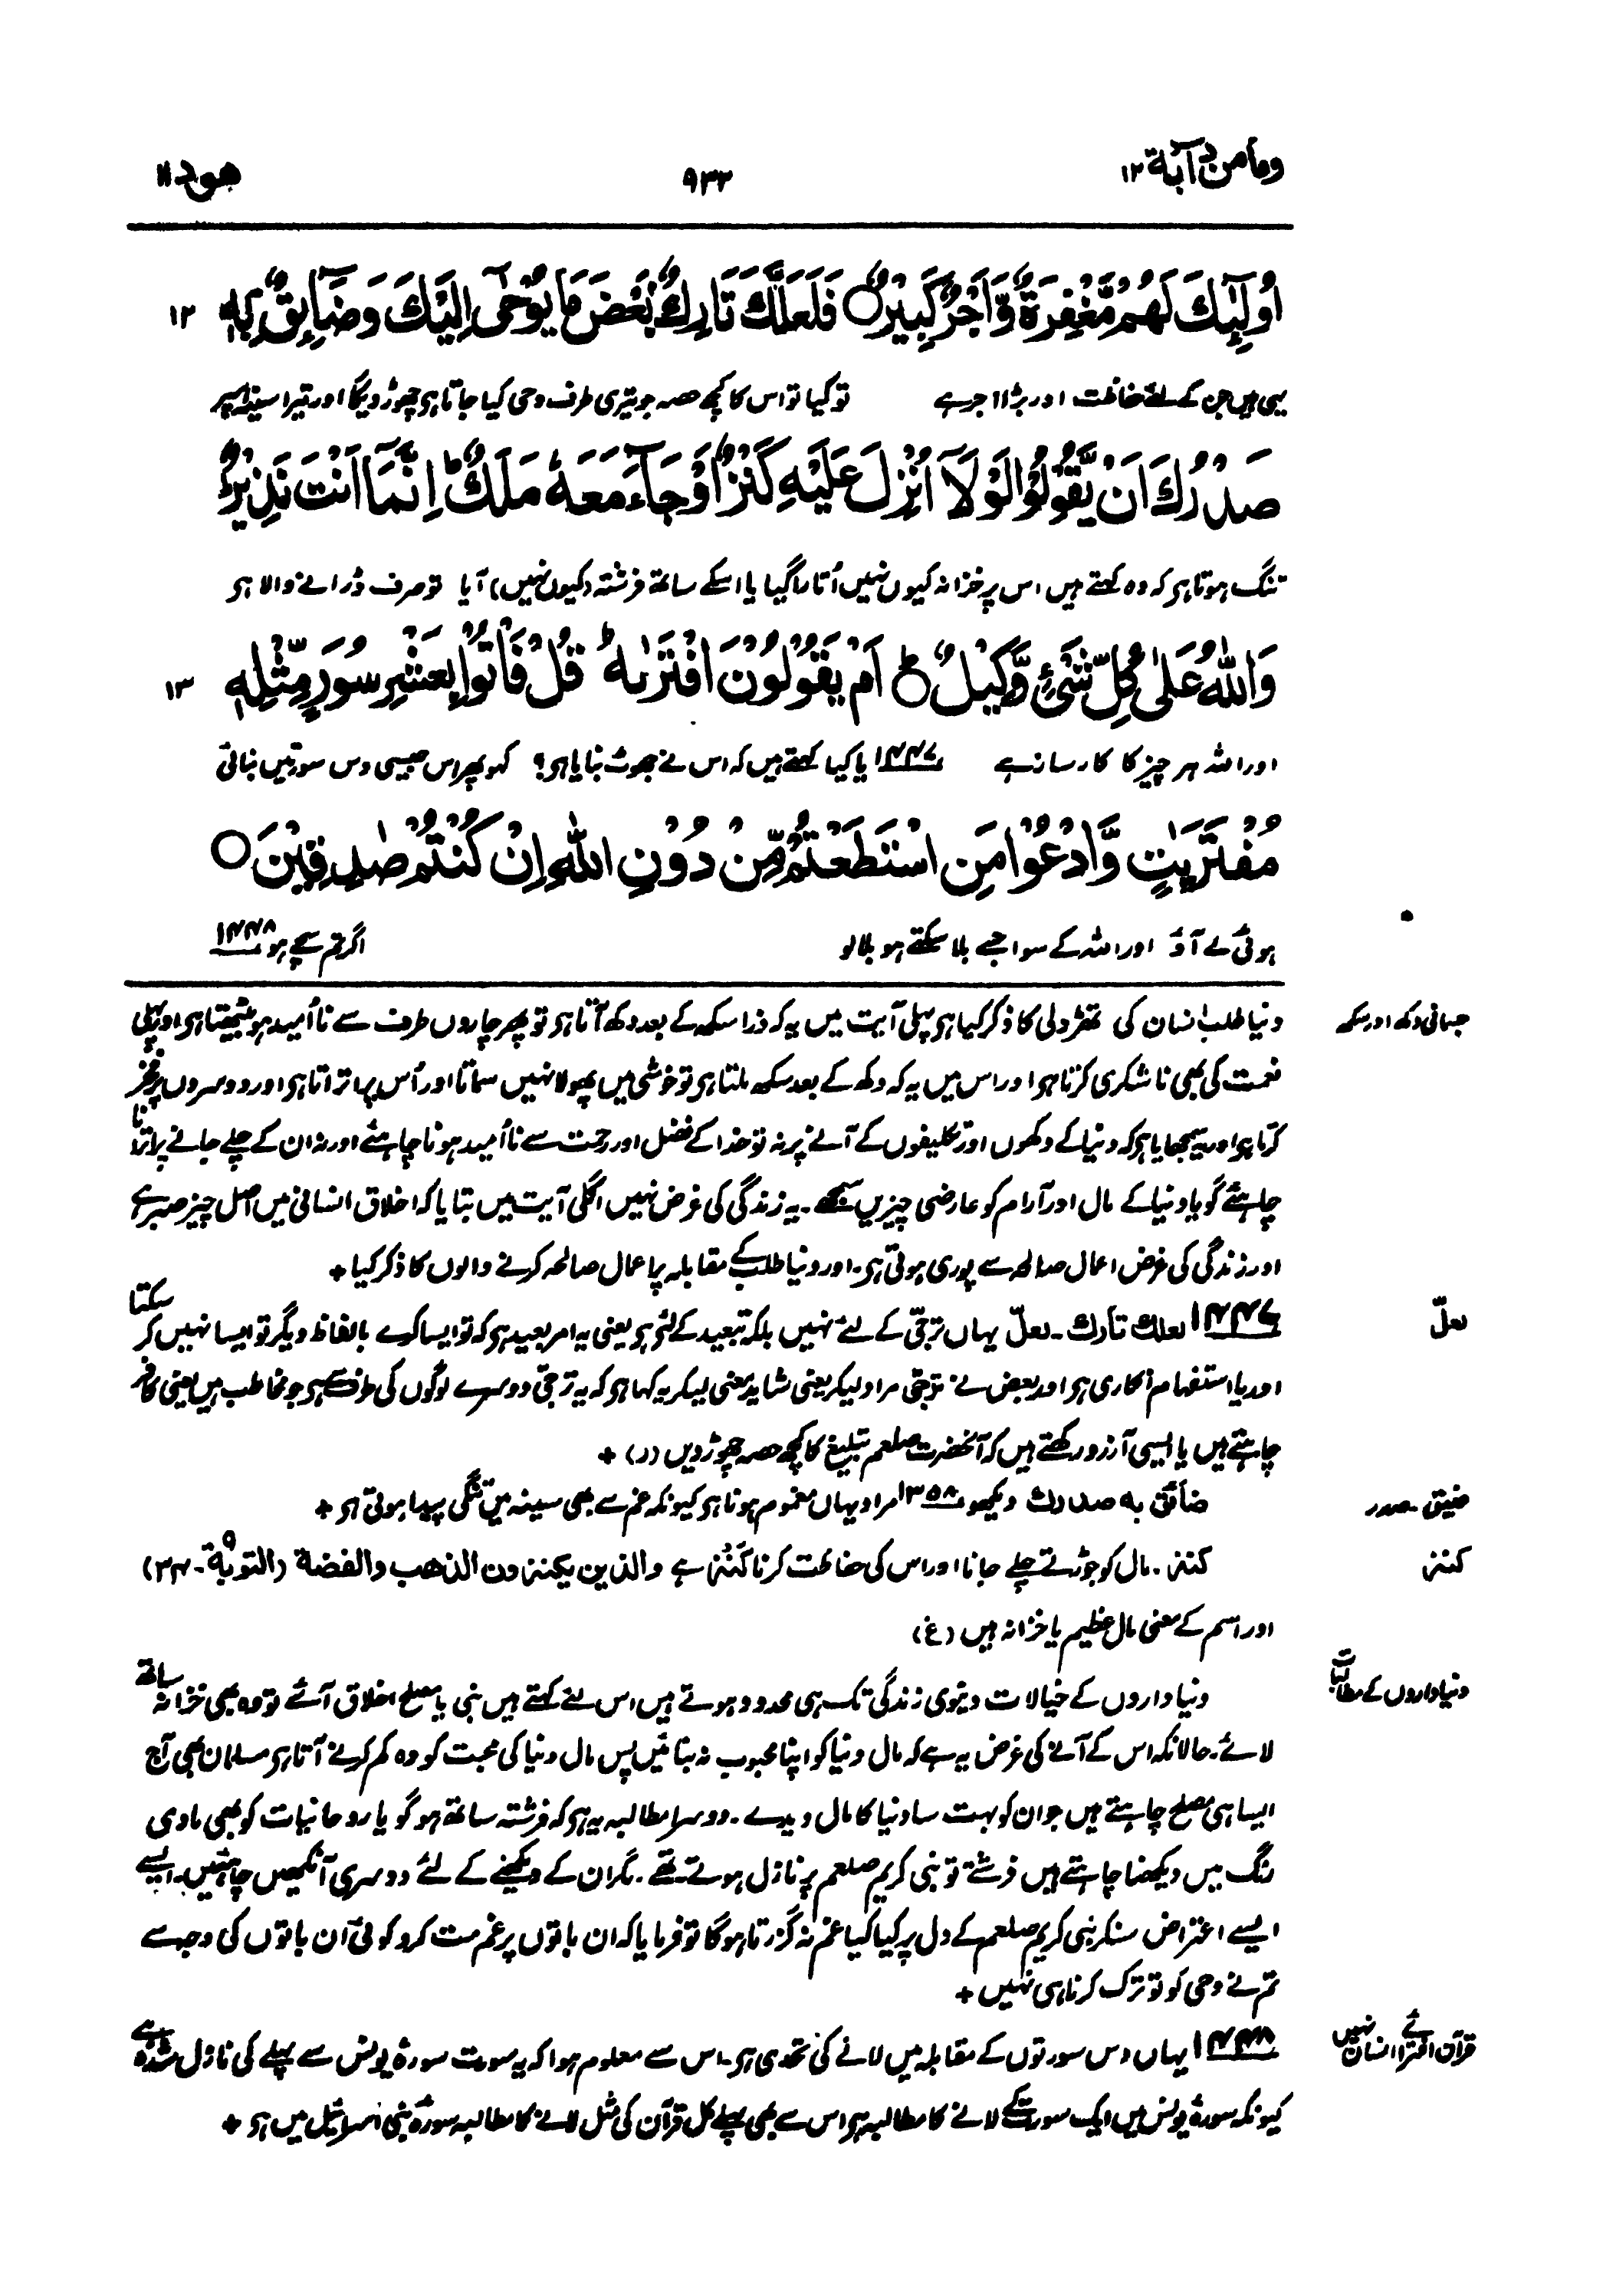 ومامن دآبة ۱۲
۹۳۲
هود ۱۱
اُولٰٓئِكَ لَهُمْ مَّغْفِرَةٌ وَّاَجْرٌ كَبِيْرٌ ○ فَلَعَلَّكَ تَارِكٌۢ بَعْضَ مَا يُوْحٰٓى اِلَيْكَ وَضَآئِقٌۢ بِهٖ ۱۲
یہی ہیں جن کے لئے حفاظت اور بڑا اجر ہے تو کیا تو اس کا کچھ حصہ جو تیری طرف وحی کیا جاتا ہی چھوڑ دیگا اور تیرا سینہ اسپر
صَدْرُكَ اَنْ يَّقُوْلُوْا لَوْلَآ اُنْزِلَ عَلَيْهِ كَنْزٌ اَوْ جَآءَ مَعَهٗ مَلَكٌ ؕ اِنَّمَآ اَنْتَ نَذِيْرٌ
تنگ ہوتا ہی کہ وہ کہتے ہیں اس پر خزانہ کیوں نہیں اُتارا گیا یا اسکے ساتھ فرشتہ (کیوں نہیں) آیا تو صرف ڈرانے والا ہی
وَاللّٰهُ عَلٰى كُلِّ شَىْءٍ وَّكِيْلٌ ○ؕ اَمْ يَقُوْلُوْنَ افْتَرٰىهُ ؕ قُلْ فَاْتُوْا بِعَشْرِ سُوَرٍ مِّثْلِهٖ ۱۳
اور اللہ ہر چیز کا کارساز ہے ۱۴۴۷ یا کیا کہتے ہیں کہ اس نے جھوٹ بنایا ہی؟ کہو پھر اس جیسی دس سورتیں بنائی
مُفْتَرَيٰتٍ وَّادْعُوْا مَنِ اسْتَطَعْتُمْ مِّنْ دُوْنِ اللّٰهِ اِنْ كُنْتُمْ صٰدِقِيْنَ ○
ہوئی لے آؤ اور اللہ کے سوا جسے بلا سکتے ہو بلا لو اگر تم سچے ہو ۱۴۴۸
جسمانی دکھ اور سکھ
دنیا طلب انسان کی تھڑدلی کا ذکر کیا ہی پہلی آیت میں یہ کہ ذرا سکھ کے بعد دکھ آتا ہی تو پھر چاروں طرف سے نا اُمید ہو بیٹھتا ہی اور پہلی
نعمت کی بھی ناشکری کرتا ہی اور اس میں یہ کہ دکھ کے بعد سکھ ملتا ہی تو خوشی میں پھولا نہیں سماتا اور اُس پر اتراتا ہی اور دوسروں پر فخر
کرتا ہی اور یہ سمجھایا ہی کہ دنیا کے دکھوں اور تکلیفوں کے آنے پر نہ تو خدا کے فضل اور رحمت سے نا اُمید ہونا چاہئے اور نہ ان کے چلے جانے پر اترانا
چاہئے گویا دنیا کے مال اور آرام کو عارضی چیزیں سمجھے۔ یہ زندگی کی غرض نہیں اگلی آیت میں بتایا کہ اخلاق انسانی میں اصل چیز صبر ہے
اور زندگی کی غرض اعمال صالحہ سے پوری ہوتی ہی۔ اور دنیا طلب کے مقابلہ پر اعمال صالحہ کرنے والوں کا ذکر کیا +
لعلّ
۱۴۴۷ لعلك تارك۔ لعلّ یہاں ترجّی کے لئے نہیں بلکہ تبعید کے لئے ہی یعنی یہ امر بعید ہی کہ تو ایسا کرے بالفاظ دیگر تو ایسا نہیں کر سکتا
اور یا استفہام انکاری ہی اور بعض نے ترجّی مراد لیکر یعنی شاید معنی لیکر یہ کہا ہی کہ یہ ترجی دوسرے لوگوں کی طرف سے ہی جو مخاطب ہیں یعنی کافر
چاہتے ہیں یا ایسی آرزو رکھتے ہیں کہ آنحضرت صلعم تبلیغ کا کچھ حصہ چھوڑ دیں (ر) +
ضیق۔ صدر
ضائق به صدرك دیکھو ۱۳۵۸ مراد یہاں مغموم ہونا ہی کیونکہ غم سے بھی سینہ میں تنگی پیدا ہوتی ہی +
کنز
کنز۔ مال کو جوڑتے چلے جانا اور اس کی حفاظت کرنا کَنْز ہے والذین یکنزون الذھب والفضة (التوبة ۹۔ ۳۴)
اور اسم کے معنی مال عظیم یا خزانہ ہیں (غ)
دنیاداروں کے مطالبات
دنیاداروں کے خیالات دنیوی زندگی تک ہی محدود ہوتے ہیں اس لئے کہتے ہیں نبی یا مصلح اخلاق آئے تو وہ بھی خزانہ ساتھ
لائے۔ حالانکہ اس کے آنے کی غرض یہ ہے کہ مال دنیا کو اپنا محبوب نہ بنائیں پس مال دنیا کی محبت کو وہ کم کرنے آتا ہی مسلمان بھی آج
ایسا ہی مصلح چاہتے ہیں جو ان کو بہت سا دنیا کا مال دیدے۔ دوسرا مطالبہ یہ ہی کہ فرشتہ ساتھ ہو گویا روحانیات کو بھی مادی
رنگ میں دیکھنا چاہتے ہیں فرشتے تو نبی کریم صلعم پر نازل ہوتے تھے۔ مگر ان کے دیکھنے کے لئے دوسری آنکھیں چاہئیں۔ ایسے
ایسے اعتراض سنکر نبی کریم صلعم کے دل پر کیا کیا غم نہ گزرتا ہوگا تو فرمایا کہ ان باتوں پر غم مت کرو کوئی ان باتوں کی وجہ سے
تم نے وحی کو تو ترک کرنا ہی نہیں +
قرآن افترائے انسان نہیں
۱۴۴۸ یہاں دس سورتوں کے مقابلہ میں لانے کی تحدی ہی۔ اس سے معلوم ہوا کہ یہ سورت سورۂ یونس سے پہلے کی نازل شدہ ہے
کیونکہ سورۂ یونس میں ایک سورت کے لانے کا مطالبہ ہی اس سے بھی پہلے کل قرآن کی مثل لانے کا مطالبہ سورۂ بنی اسرائیل میں ہی +